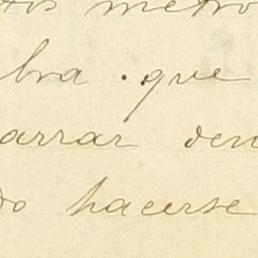 tos metro
bra . que
arrar den
do hacerse